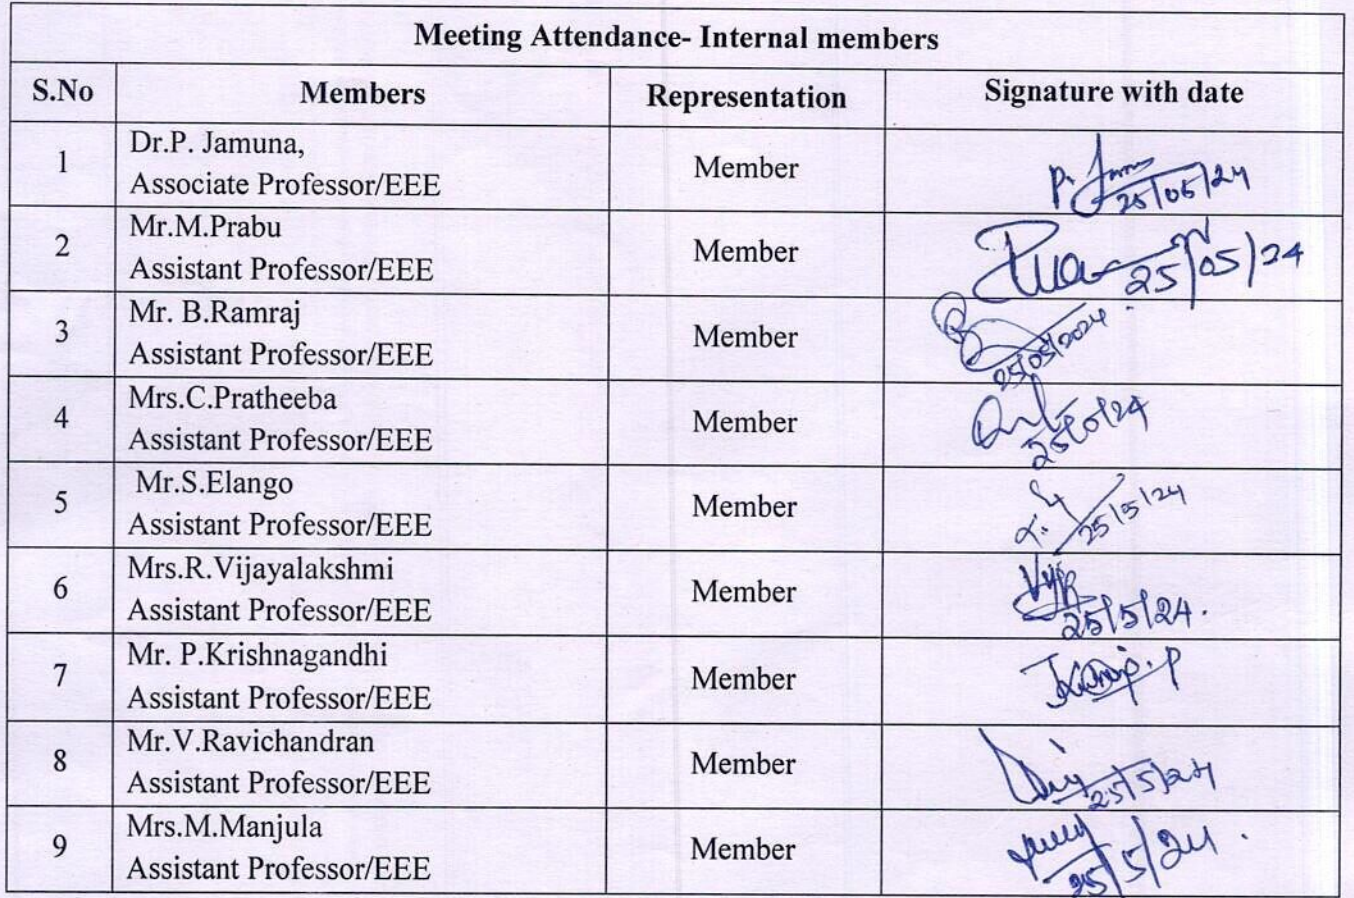 Meeting Attendance- Internal members
S.No Members Representation Signature with date
1 Dr.P. Jamuna,
Associate Professor/EEE Member 25/05/24
2 Mr.M.Prabu
Assistant Professor/EEE Member 25/05/24
3 Mr. B.Ramraj
Assistant Professor/EEE Member 25/05/2024
4 Mrs.C.Pratheeba
Assistant Professor/EEE Member
5 Mr.S.Elango
Assistant Professor/EEE Member 25/5/24
6 Mrs.R.Vijayalakshmi
Assistant Professor/EEE Member 25/5/24.
7 Mr. P.Krishnagandhi
Assistant Professor/EEE Member
8 Mr.V.Ravichandran
Assistant Professor/EEE Member 25/5/24
9 Mrs.M.Manjula
Assistant Professor/EEE Member 25/5/24.